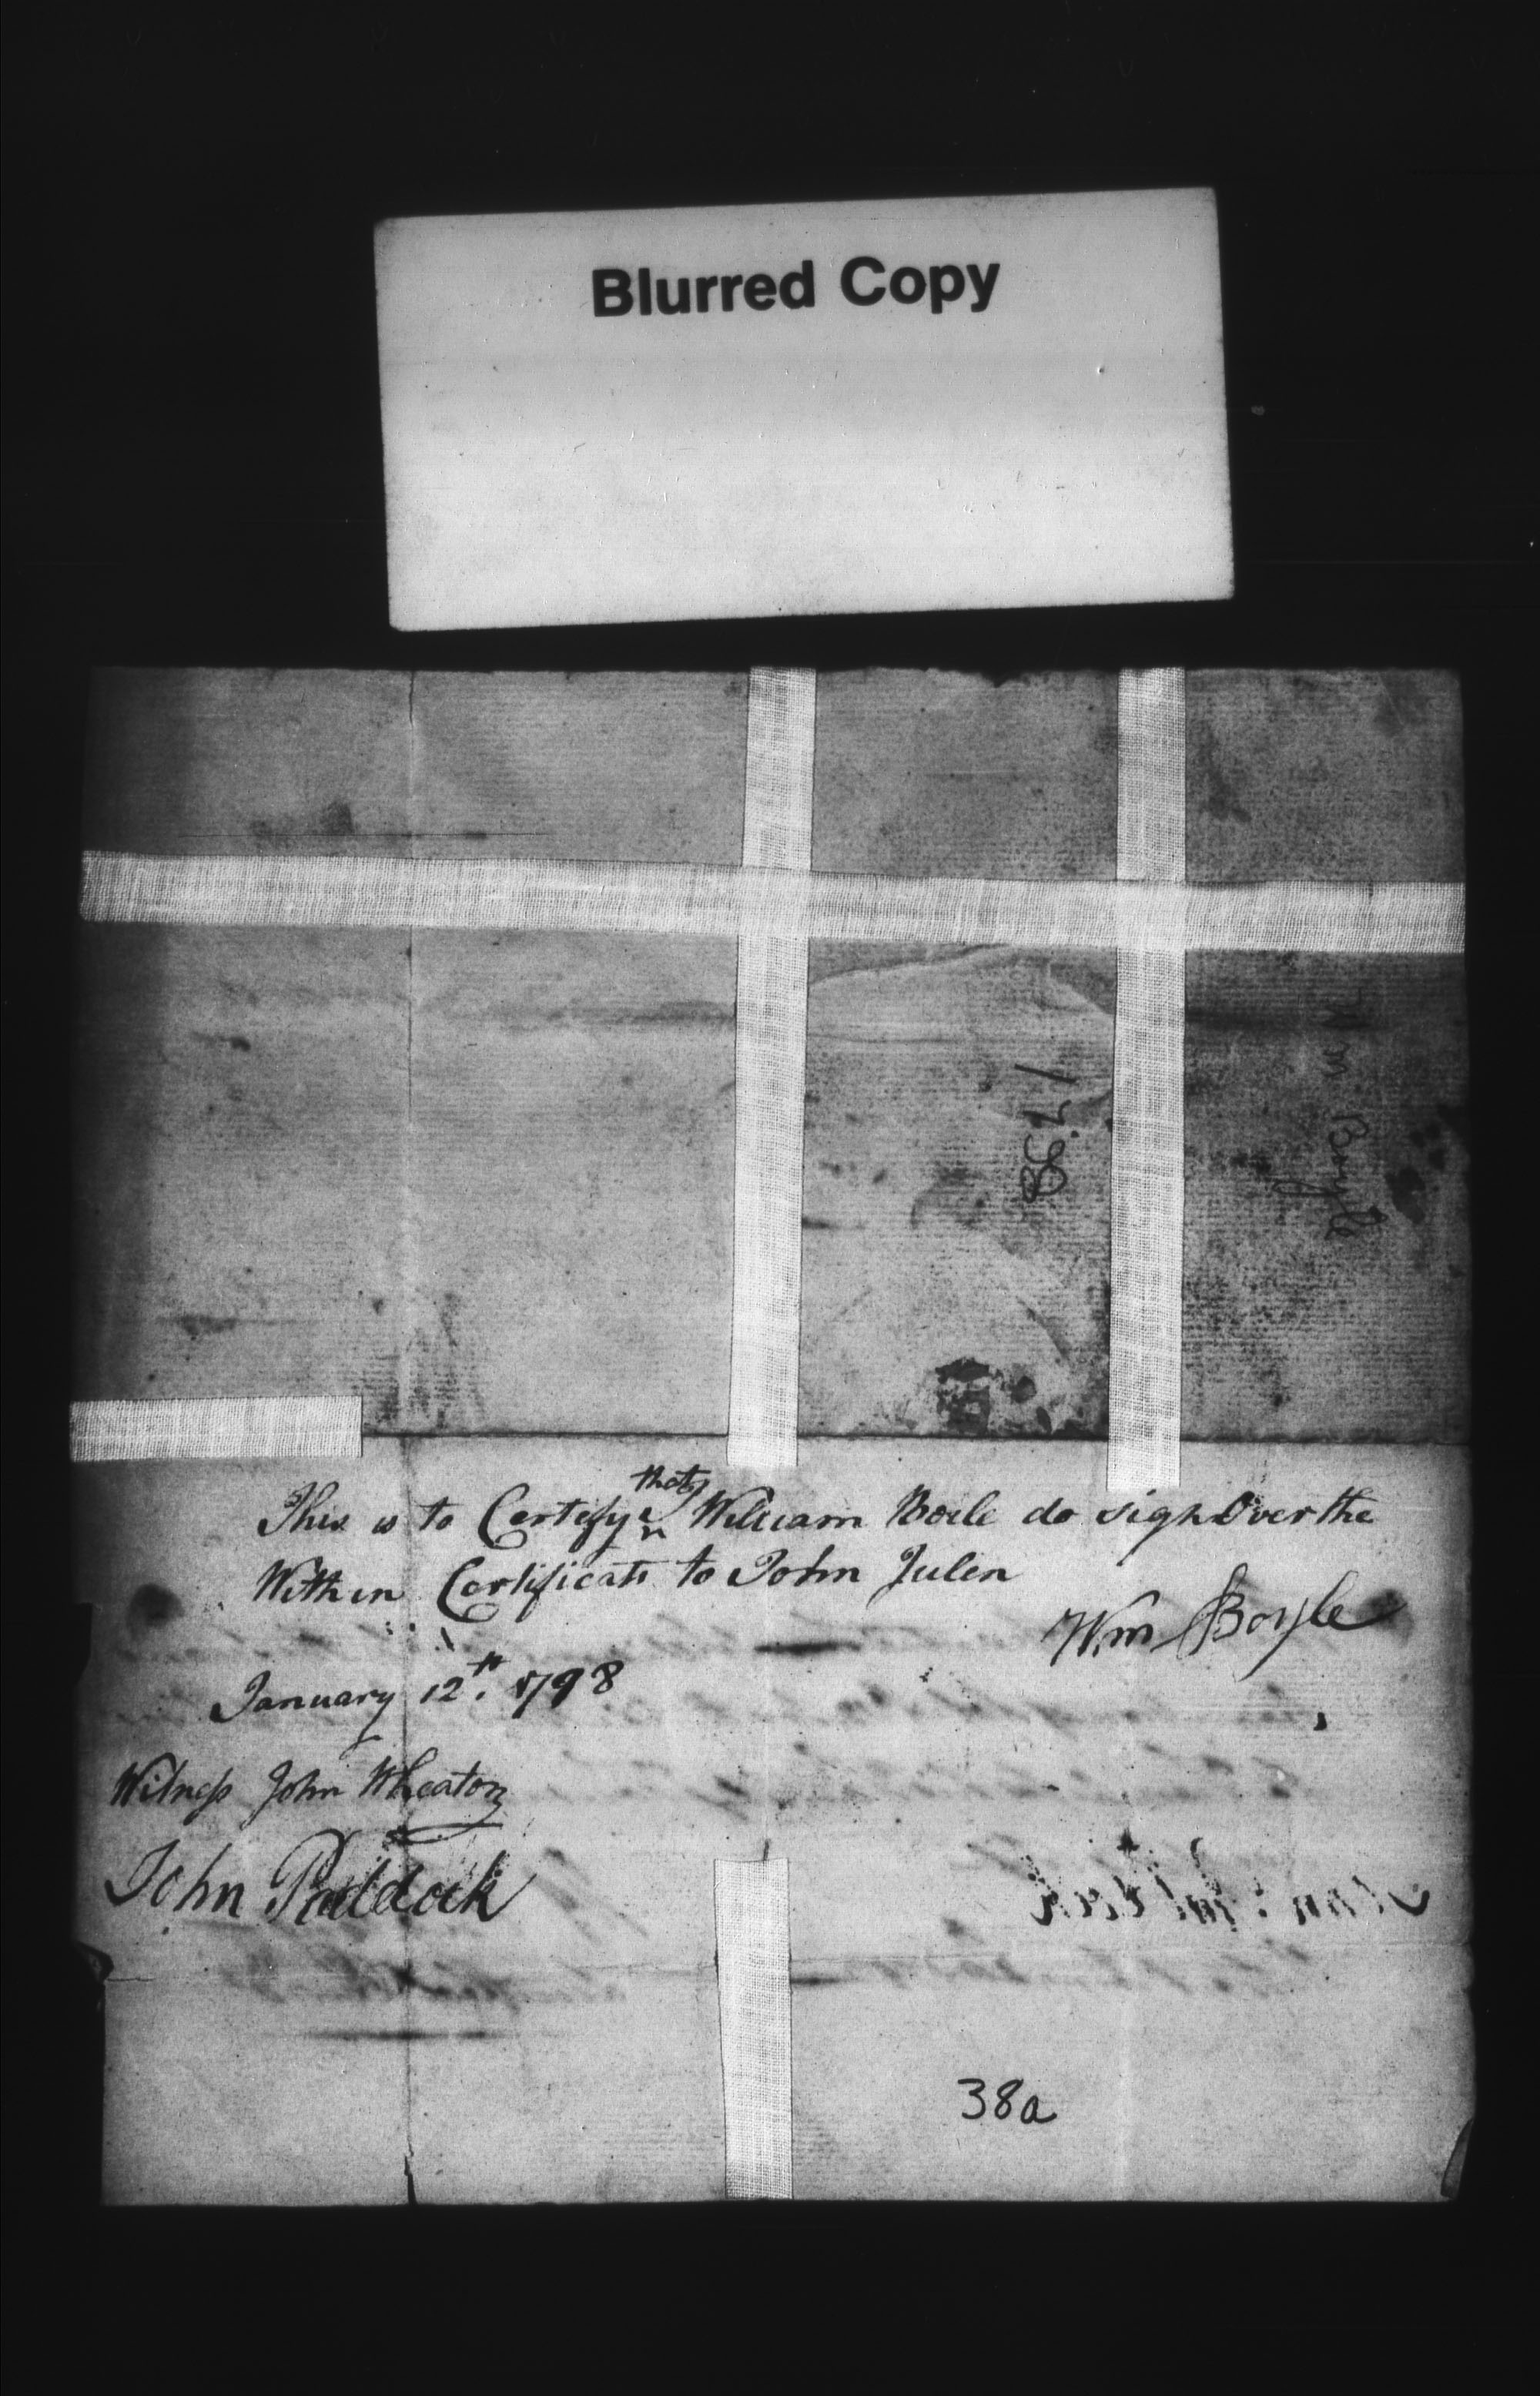 Blurred Copy
Wm Boyle
1798
This is to Certify that William Boile do sign Over the
Within Certificate to John Julen
Wm Boyle
January 12th. 1798
Witness John Wheaton
John Paddock
38a